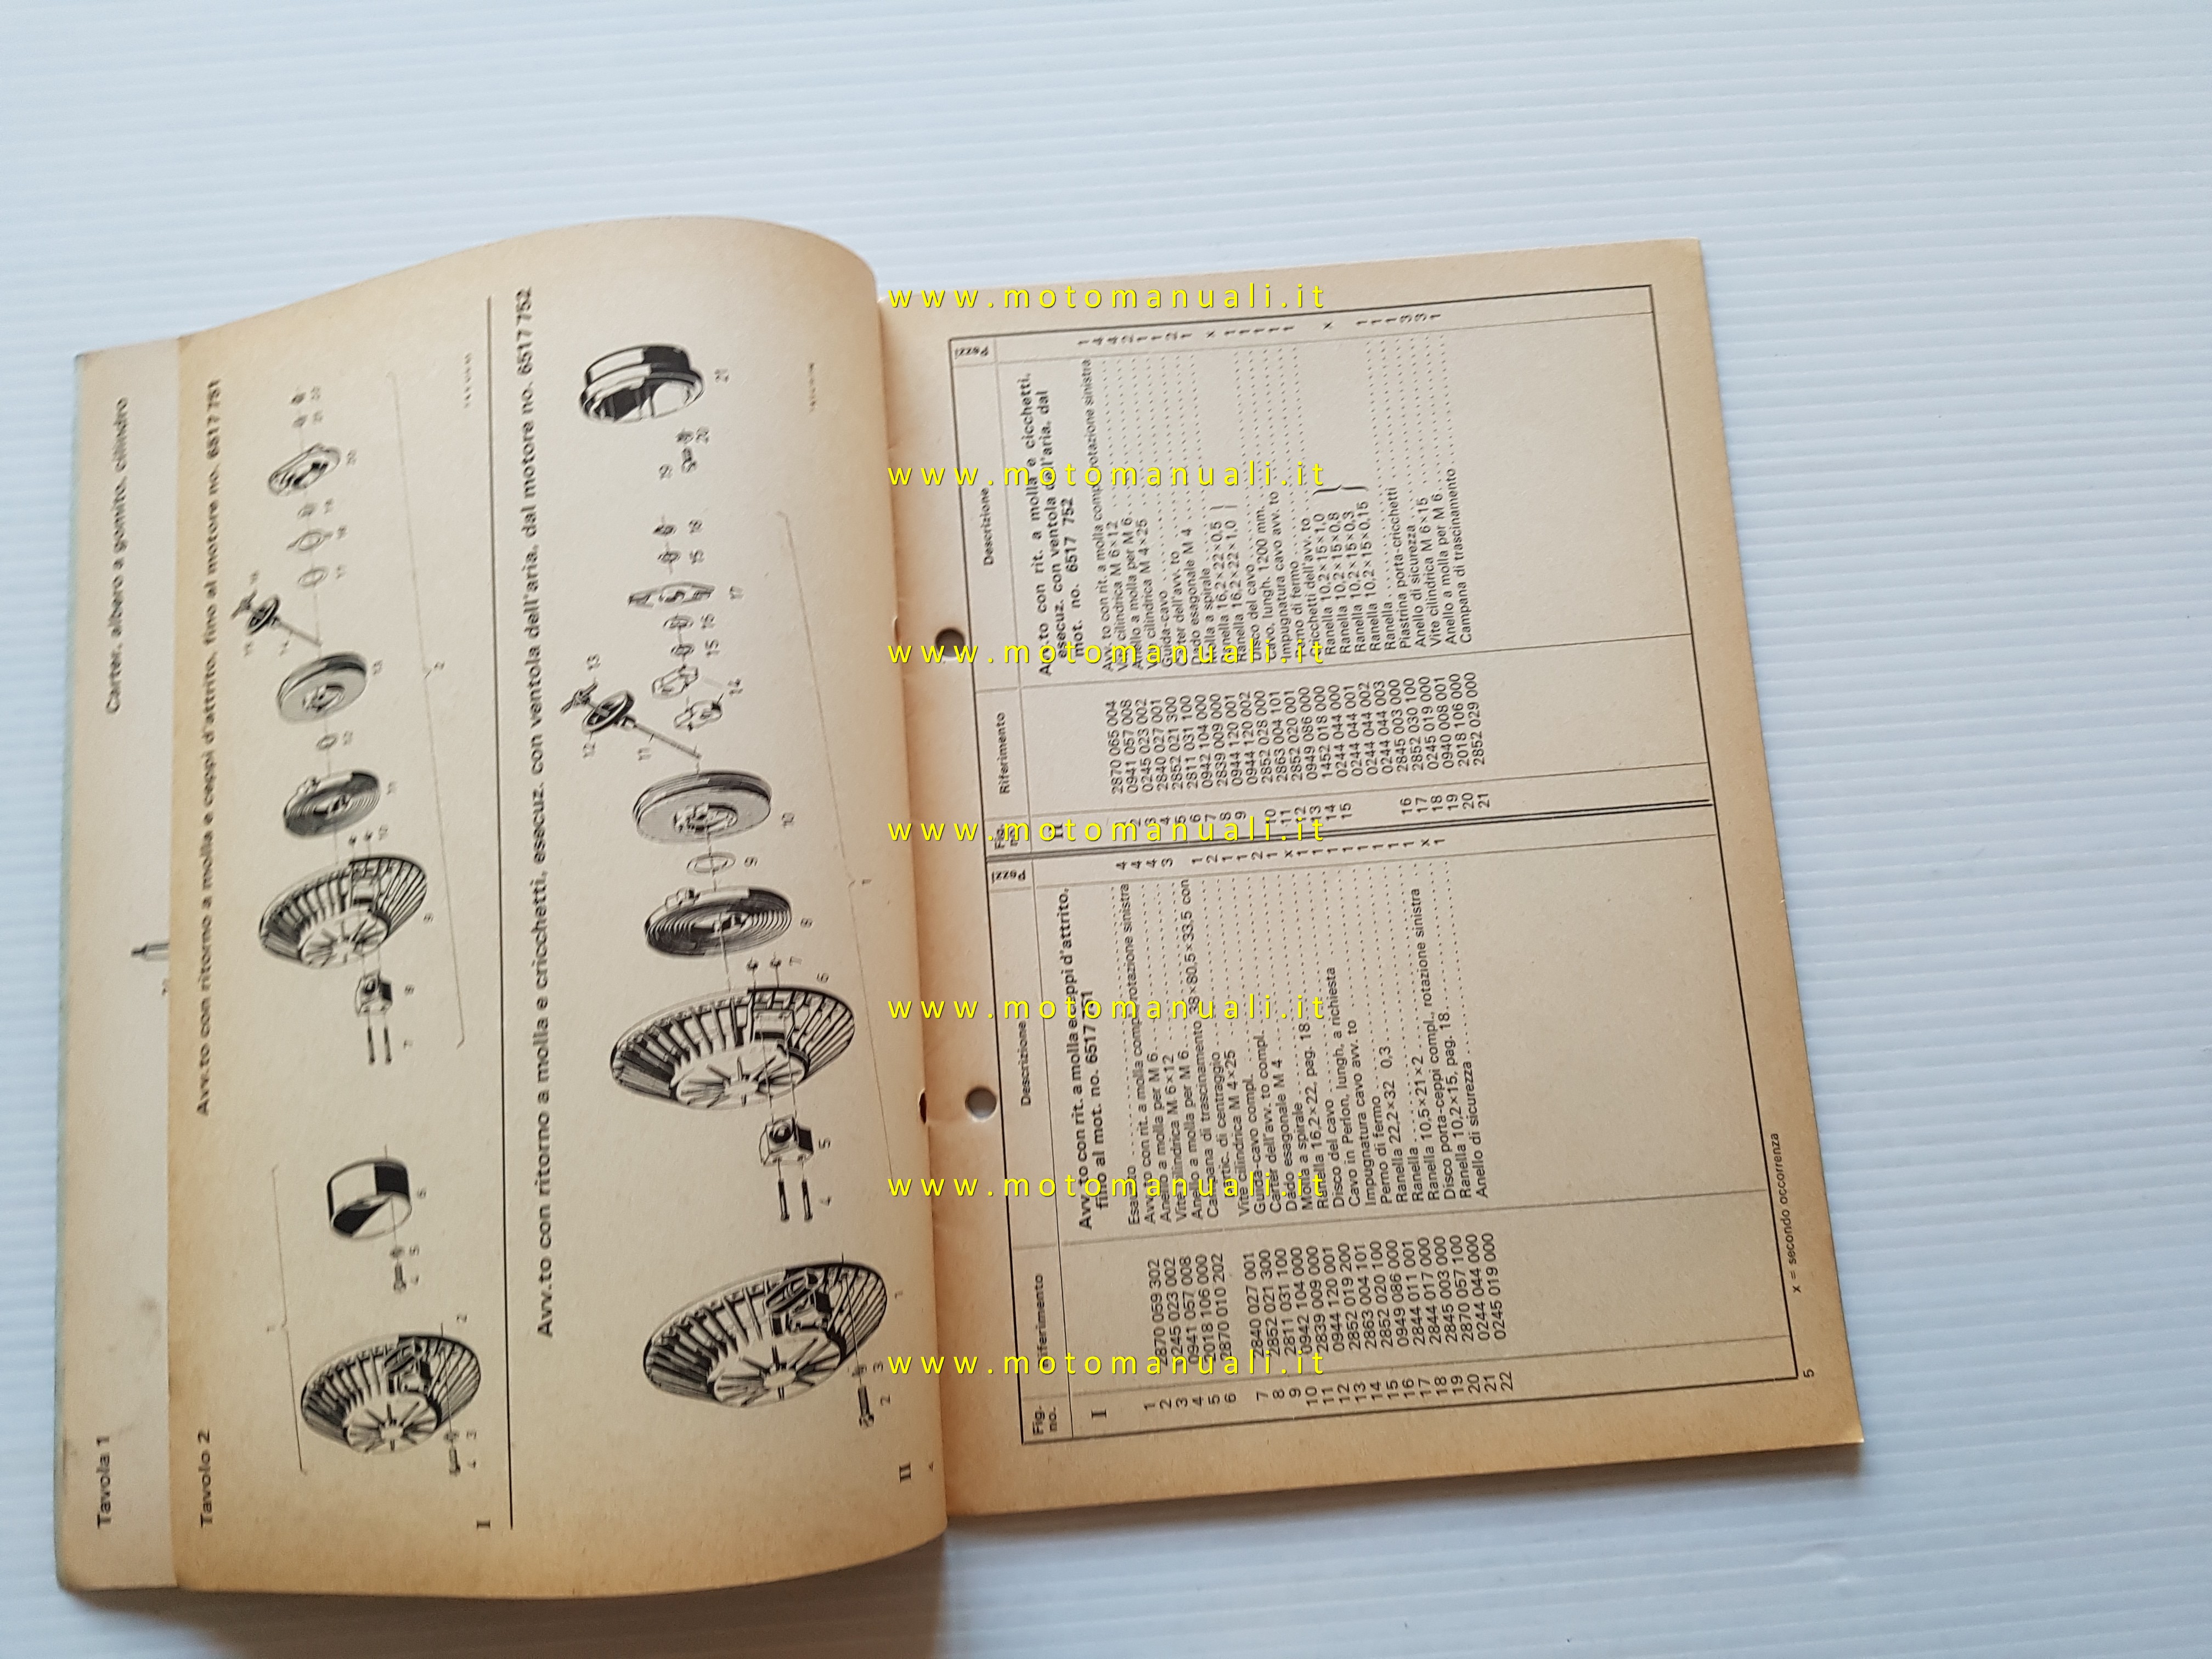 Tavola 1
Carter, albero a gomito, cilindro
Tavola 2
Avv.to con ritorno a molla e ceppi d'attrito, fino al motore no. 6517 751
I
Avv.to con ritorno a molla e cricchetti, esecuz. con ventola dell'aria, dal motore no. 6517 752
II
4
Fig. no.
Riferimento
Descrizione
Pezzi
I
Avv.to con rit. a molla e ceppi d'attrito,
fino al mot. no. 6517 751
1 Esausto
2 2870 059 302 Avv.to con rit. a molla compl. rotazione sinistra
3 0245 023 002 Anello a molla per M 6
4 0941 057 008 Vite cilindrica M 6×12
5 2018 106 000 Anello a molla per M 6
6 2870 010 202 Campana di trascinamento 38×80,5×33,5 con
partic. di centraggio
Vite cilindrica M 4×25
7 2840 027 001 Guida-cavo compl.
8 2852 021 300 Carter dell'avv. to compl.
9 2811 031 100 Dado esagonale M 4
10 0942 104 000 Molla a spirale
11 2839 009 000 Ranella 16,2×22, pag. 18
12 0944 120 001 Disco del cavo
13 2852 019 200 Cavo in Perlon, lungh, a richiesta
14 2863 004 101 Impugnatura cavo avv. to
15 2852 020 100 Perno di fermo
16 0949 086 000 Ranella 22,2×32 0,3
17 2844 011 001 Ranella
18 2844 017 000 Ranella 10,5×21×2
19 2845 003 000 Disco porta-ceppi compl., rotazione sinistra
20 2870 057 100 Ranella 10,2×15, pag. 18
21 0244 044 000 Anello di sicurezza
22 0245 019 000
Fig. no.
Riferimento
Descrizione
Pezzi
II
Avv.to con rit. a molla e cicchetti,
esecuz. con ventola dell'aria, dal
mot. no. 6517 752
2870 065 004 Avv. to con rit. a molla compl. rotazione sinistra 1
2 0941 057 008 Vite cilindrica M 6×12 4
3 0245 023 002 Anello a molla per M 6 4
4 2840 027 001 Vite cilindrica M 4×25 2
5 2852 021 300 Guida-cavo 1
6 2811 031 100 Carter dell'avv. to 1
7 0942 104 000 Dado esagonale M 4 2
8 2839 009 000 Molla a spirale 1
9 0944 120 001 Ranella 16,2×22×0,5
0944 120 002 Ranella 16,2×22×1,0 x
10 2852 028 000 Disco del cavo 1
11 2863 004 101 Cavo, lungh. 1200 mm. 1
12 2852 020 001 Impugnatura cavo avv. to 1
13 0949 086 000 Perno di fermo 1
14 1452 018 000 Cricchetti dell'avv. to
15 0244 044 000 Ranella 10,2×15×1,0
0244 044 001 Ranella 10,2×15×0,8
0244 044 002 Ranella 10,2×15×0,3
0244 044 003 Ranella 10,2×15×0,15 x
16 2845 003 000 Ranella
17 2852 030 100 Piastrina porta-cricchetti 1
18 0245 019 000 Anello di sicurezza 1
19 0940 008 001 Vite cilindrica M 6×15 3
20 2018 106 000 Anello a molla per M 6 3
21 2852 029 000 Campana di trascinamento 1
x = secondo occorrenza
5
www.motomanuali.it
www.motomanuali.it
www.motomanuali.it
www.motomanuali.it
www.motomanuali.it
www.motomanuali.it
www.motomanuali.it